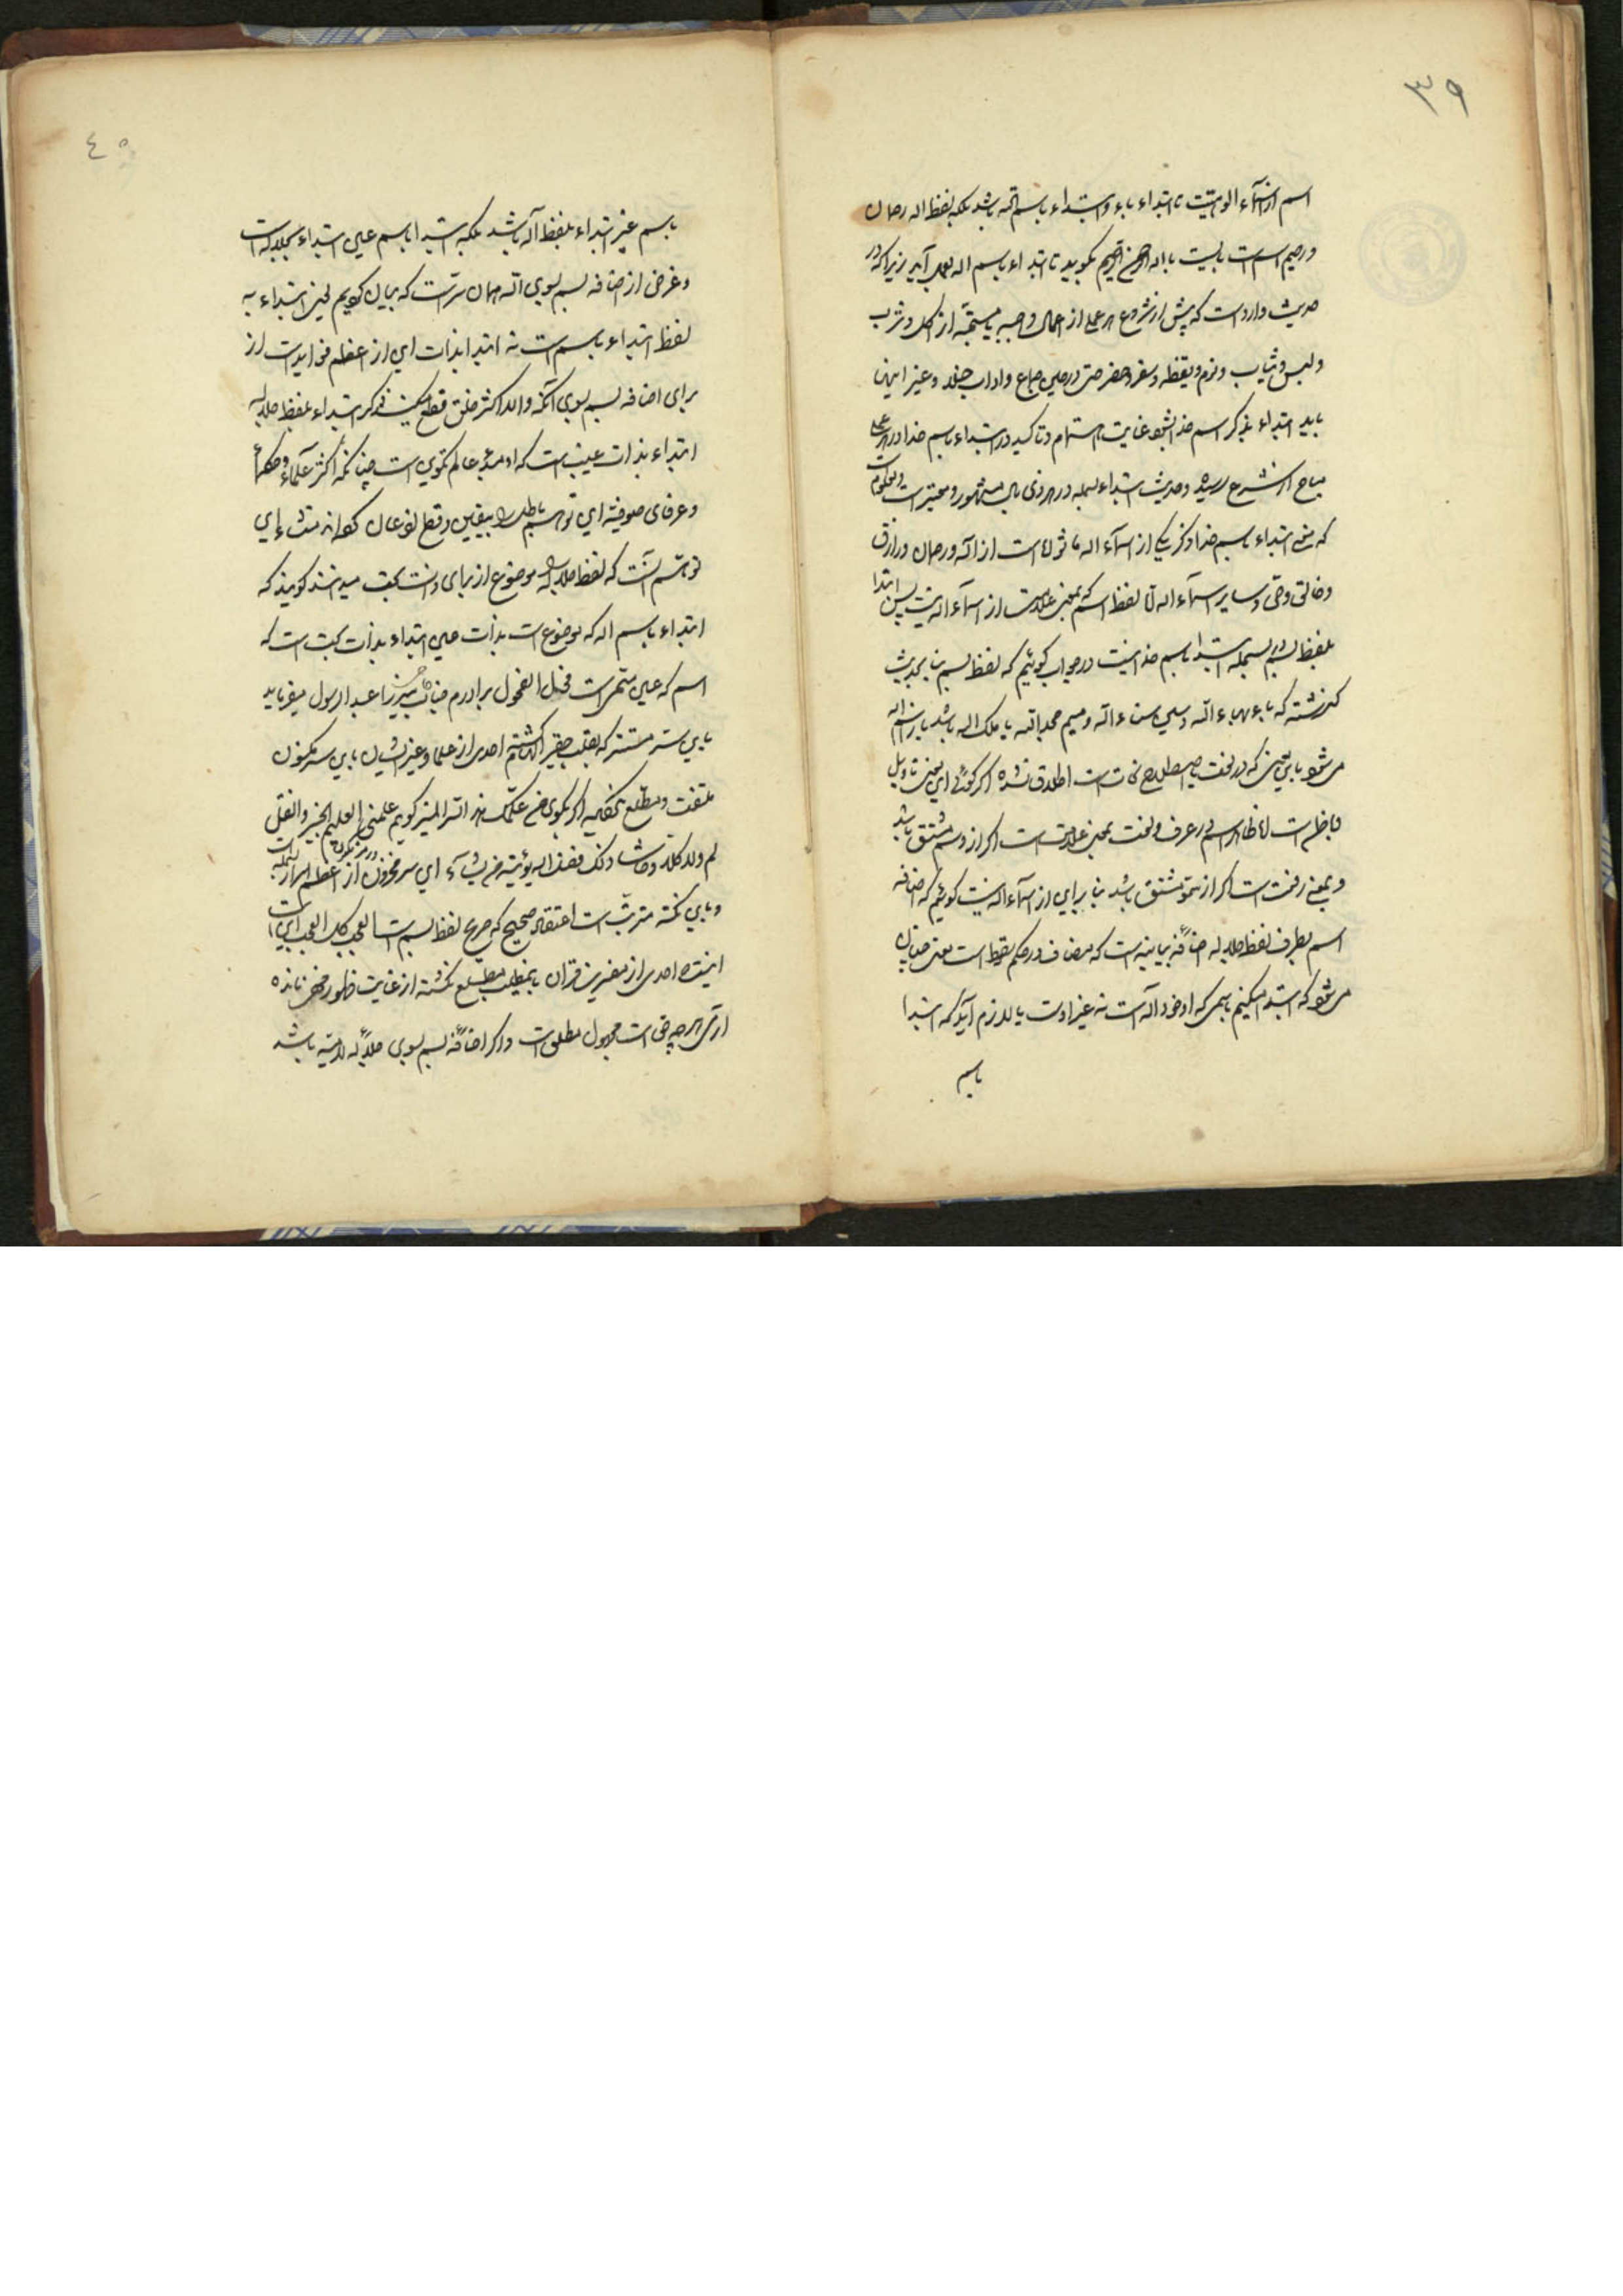 ۳۹
اسم از اسماء الوهیتت تا ابتداء باء و ابتداء باسم الله باشد بلکه بلفظ اله رحمان
و رحیم است بایست بالله الرحمن الرحیم بکوید تا ابتداء باسم اله بعمل آید زیرا که در
حدیث وارد است که پیش از شروع هر عملی از اعمال واجبه یا مستحبه از اکل و شرب
و لبس و ثیاب و نوم و یقظه و سفر و حضر حتی در حین جماع و اداب خلا و غیر اینها
باید ابتداء بذکر اسم خدا بشود غایت اهتمام و تاکید در ابتداء باسم خدا در هر عملی
مباح از شرع رسیده و حدیث ابتداء بسمله در هر ذی بال مشهور و معتبر است و معلومست
که معنی ابتداء باسم خدا ذکر یکی از اسماء اله ماثوره است از اله و رحمان و رازق
و خالق و حی و سایر اسماء اله اما لفظ اسم که بمعنی علامت است از اسماء اله نیست پس ابتدا
بلفظ بسم در بسمله ابتدا باسم خدا نیست در جواب کوئیم که لفظ بسم بنا بحدیث
کذشته که باء بهاء اله و سین سناء اله و میم مجد الله یا ملک اله باشد باز اسم اله
می شود باین معنی که در لغت یا اصطلاح نحات است اطلاق نشده اکر کوئی این معنی تاویل
و باطن است اما ظاهر اسم در عرف و لغت بمعنی علامت است اکر از وسم مشتق باشد
و بمعنی رفعت است اکر از سمو مشتق باشد بنا براین از اسماء اله نیست کوئیم که اضافه
اسم بطرف لفظ جلاله اضافه بیانیه است که مضاف در حکم سقوط است معنی چنان
می شود که ابتدا میکنیم باسمی که او خود اله است نه غیر اوست یا لازم آید که ابتدا
باسم
۴۰
باسم غیر ابتداء بلفظ اله باشد بلکه ابتدا باسم عین ابتداء بجلاله است
و غرض از اضافه بسم بسوی الله همان سریست که بیان کردیم لیکن ابتداء به
لفظ ابتداء باسم است نه ابتدا بذات این از اعظم فواید است از
برای اضافه بسم بسوی الله و الا اکثر خلق قطع میکنند که ابتداء بلفظ جلاله
ابتداء بذات غیب است که او مبدء عالم تکوین است چنانکه اکثر علماء و حکماء
و عرفای صوفیه این توهم باطل را بیقین و قطع اذعان کرده اند منشاء این
توهم آنست که لفظ جلاله را موضوع از برای ذات بحت میدانند کویند که
ابتداء باسم اله که موضوع است بذات عین ابتداء بذات بحت است که
اسم که عین مسمی است فحل الفحول برادرم جناب میرزا عبد الرسول میفرماید
باین ستر مستتر که بقلب حقیر احدی از علما و غیر ایشان باین سر مکنون
ملتفت و مطلع نکشته اکر بکوی من علمک هذا السر المنیر کویم علمنی العلیم الخبیر و الفضل
لم ولا کلا و حاشا ذلک فضل اله یؤتیه من یشاء این سر مخزون و رمز مکنون از اعظم اسرار بسمله است
و باین نکته مترتب است اعتقاد صحیح که مرجع لفظ بسم است العجب کل العجب این است
اینست احدی از مفسرین قران باین مطلب مطلع نکشته از غایت ظهور مخفی مانده
آری هر چه خفی است مجهول مطلق است و اکر اضافه بسم بسوی جلاله لامیه باشد